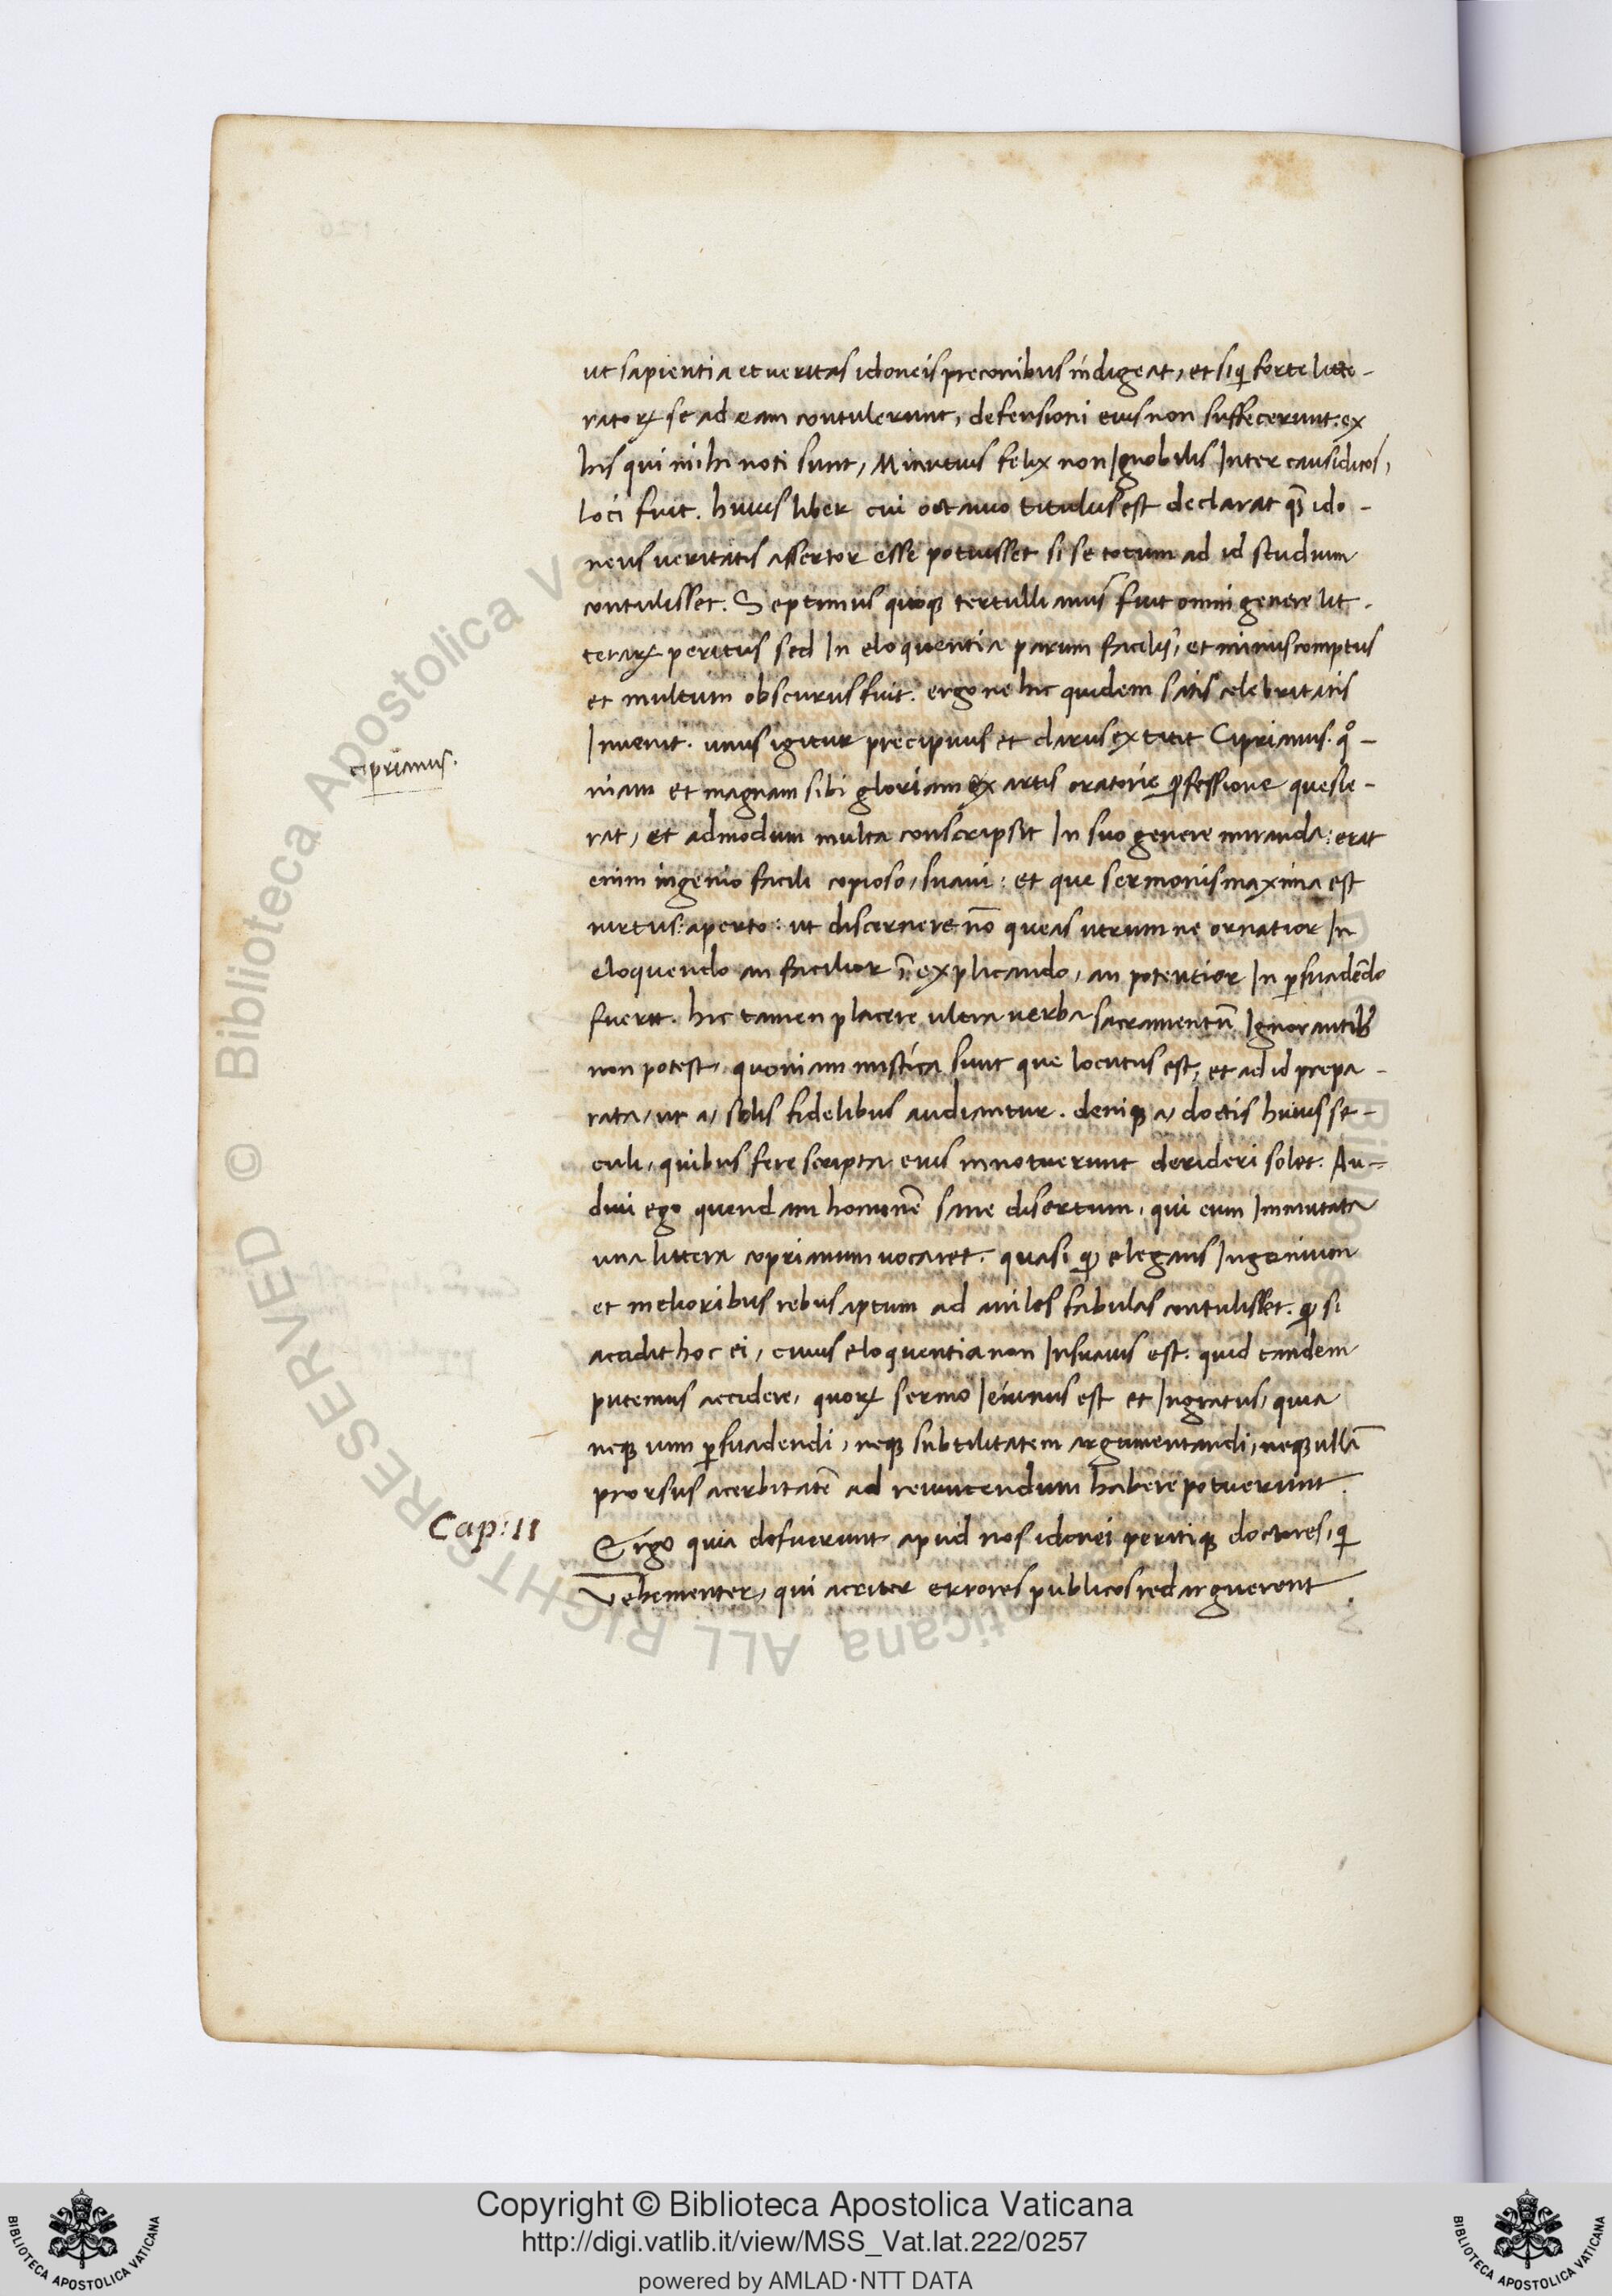 ut sapientia et ueritas idoneis preconibus indigeat, et si qͥ forte litte-
ratoꝝ se ad eam contulerunt, defensioni eius non suffecerunt. ex
his qui mihi noti sunt, Minutius felix non Ignobilis Inter causidicos,
loci fuit. huius liber cui octauio titulus est declarat qͣꝫ ido-
neus ueritatis assertor esse potuisset si se totum ad id studium
contulisset. Septimus quoqꝫ tertullianus fuit omni genere lit-
teraꝝ peritus sed In eloquentia parum facilis, et minus comptus
et multum obscurus fuit. ergo ne hic quidem satis celebritatis
Inuenit. unus igitur precipuus et clarus extitit Ciprianus. qͦ-
niam et magnam sibi gloriam ex artis oratorie ꝓfessione quesie-
rat, et admodum multa conscripsit In suo genere miranda: erat
enim ingenio facili copioso, suaui: et que sermonis maxima est
uirtus: aperto: ut discernere nō queas utrum ne ornatior In
eloquendo an facilior ī explicando, an potentior In ꝑsuadēdo
fuerit. hic tamen placere ultra uerba sacramentū Ignorantibꝰ
non potest, quoniam mistica sunt que locutus est, et ad id prepa-
rata, ut a, solis fidelibus audiantur. deniqꝫ a, doctis huius se-
culi, quibus fere scripta eius innotuerunt derideri solet. Au-
diui ego quendam hominē sane disertum, qui eum Immutata
una littera coprianum uocaret. quasi qͩ elegans Ingenium
et melioribus rebus aptum ad aniles fabulas contulisset. qͩ si
accidit hoc ei, cuius eloquentia non Insuauis est. quid tandem
putemus accidere, quoꝝ sermo Ieiunus est et Ingratus, quia
neqꝫ uim ꝑsuadendi, neqꝫ subtilitatem argumentandi, neqꝫ ullā
prorsus acerbitatē ad reuincendum habere potuerunt.
Ergo quia defuerunt apud nos idonei peritiqꝫ doctores, qͥ
Vehementer, qui acriter errores publicos redarguerent.
ciprianus.
Cap: II
Copyright © Biblioteca Apostolica Vaticana
http://digi.vatlib.it/view/MSS_Vat.lat.222/0257
powered by AMLAD·NTT DATA
BIBLIOTECA APOSTOLICA VATICANA
BIBLIOTECA APOSTOLICA VATICANA
© Biblioteca Apostolica Vaticana ALL RIGHTS RESERVED